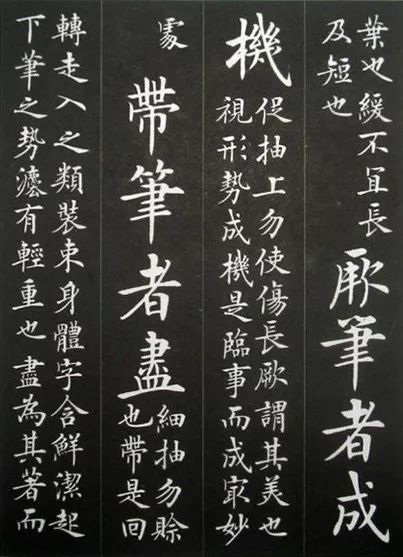 葉也緩不冝長
及短也
厥筆者成
機
促抽上勿使傷長厥謂其美也
視形勢成機是臨事而成冣妙
處
帶筆者盡
細抽勿賒
也帶是回
轉走入之類裝束身體字含鮮潔起
下筆之勢灋有輕重也盡為其著而